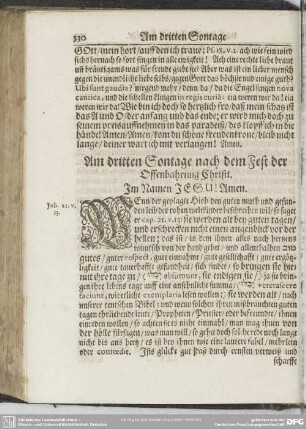 330 Am dritten Sontage
GOtt/ mein hort/ auff den ich traue; Ps. 18. v. 2. ach wie fein wird
sichs hernach so fort singen in alle ewigkeit! Ach eine rechte liebe braut
und bräutigams was für freude giebt sie? Aber was ist ein lieber mensch
gegen die unendlich liebe selbs/ gegen Gott das höchste und einige gutt?
Ubi sunt gaudia? nirgend mehr/ denn da/ da die Engel singen nova
cantica, und die schellen klingen in regis curiâ: eia weren wir da! eia
weren wir da! Wie bin ich doch so hertzlich fro/ daß mein schatz ist
das A und O/ der anfang und das ende; er wird mich doch zu
seinem preis auffnehmen in das paradeiß/ des klopff ich in die
hände! Amen/ Amen/ kom du schöne freudenkron/ bleib nicht
lange/ deiner wart ich mit verlangen! Amen.
Am dritten Sontage nach dem Fest der
Offenbahrung Christi.
Im Namen JESU! Amen.
Job. 21. v.
13.
WEnn der geplagte Hiob den guten muth und gesun-
den leib der rohen weltkinder beschreiben wil/ so saget
er cap. 21. v. 13. sie werden alt bey guten tagen/
und erschrecken nicht einen augenblick vor der
hellen; das ist/ in dem ihnen alles nach hertzens
wunsch von der hand gehet/ und allenthalben
gutes/ guter respect, gute einnahme/ gute gesellschafft/ gute ergötz-
ligkeit/ gute dauerhaffte gesundheit/ sich findet/ so bringen sie hie-
mit ihre tage zu/
absumunt, sie endigen sie/ ja sie brin-
gen ihre lebens tage auff eine ansehnliche summa/ veterascere
faciunt,
unserer teutschen Bibel/ und wenn solcher ihrer mißbrauchten guten
tagen ehrliebende leute/ Propheten/ Priester/ oder befreundte/ ihnen
einreden wollen/ so achten sie es nicht einmahl/ man mag ihnen von
der hölle fürsagen/ was man will/ so gehet doch solche rede noch lange
nicht bis ans hertz/ es ist bey ihnen wie eine lautere fabel/ mehrlein
oder comœdie. Ists glück gut daß durch ernsten verweiß und
scharffe